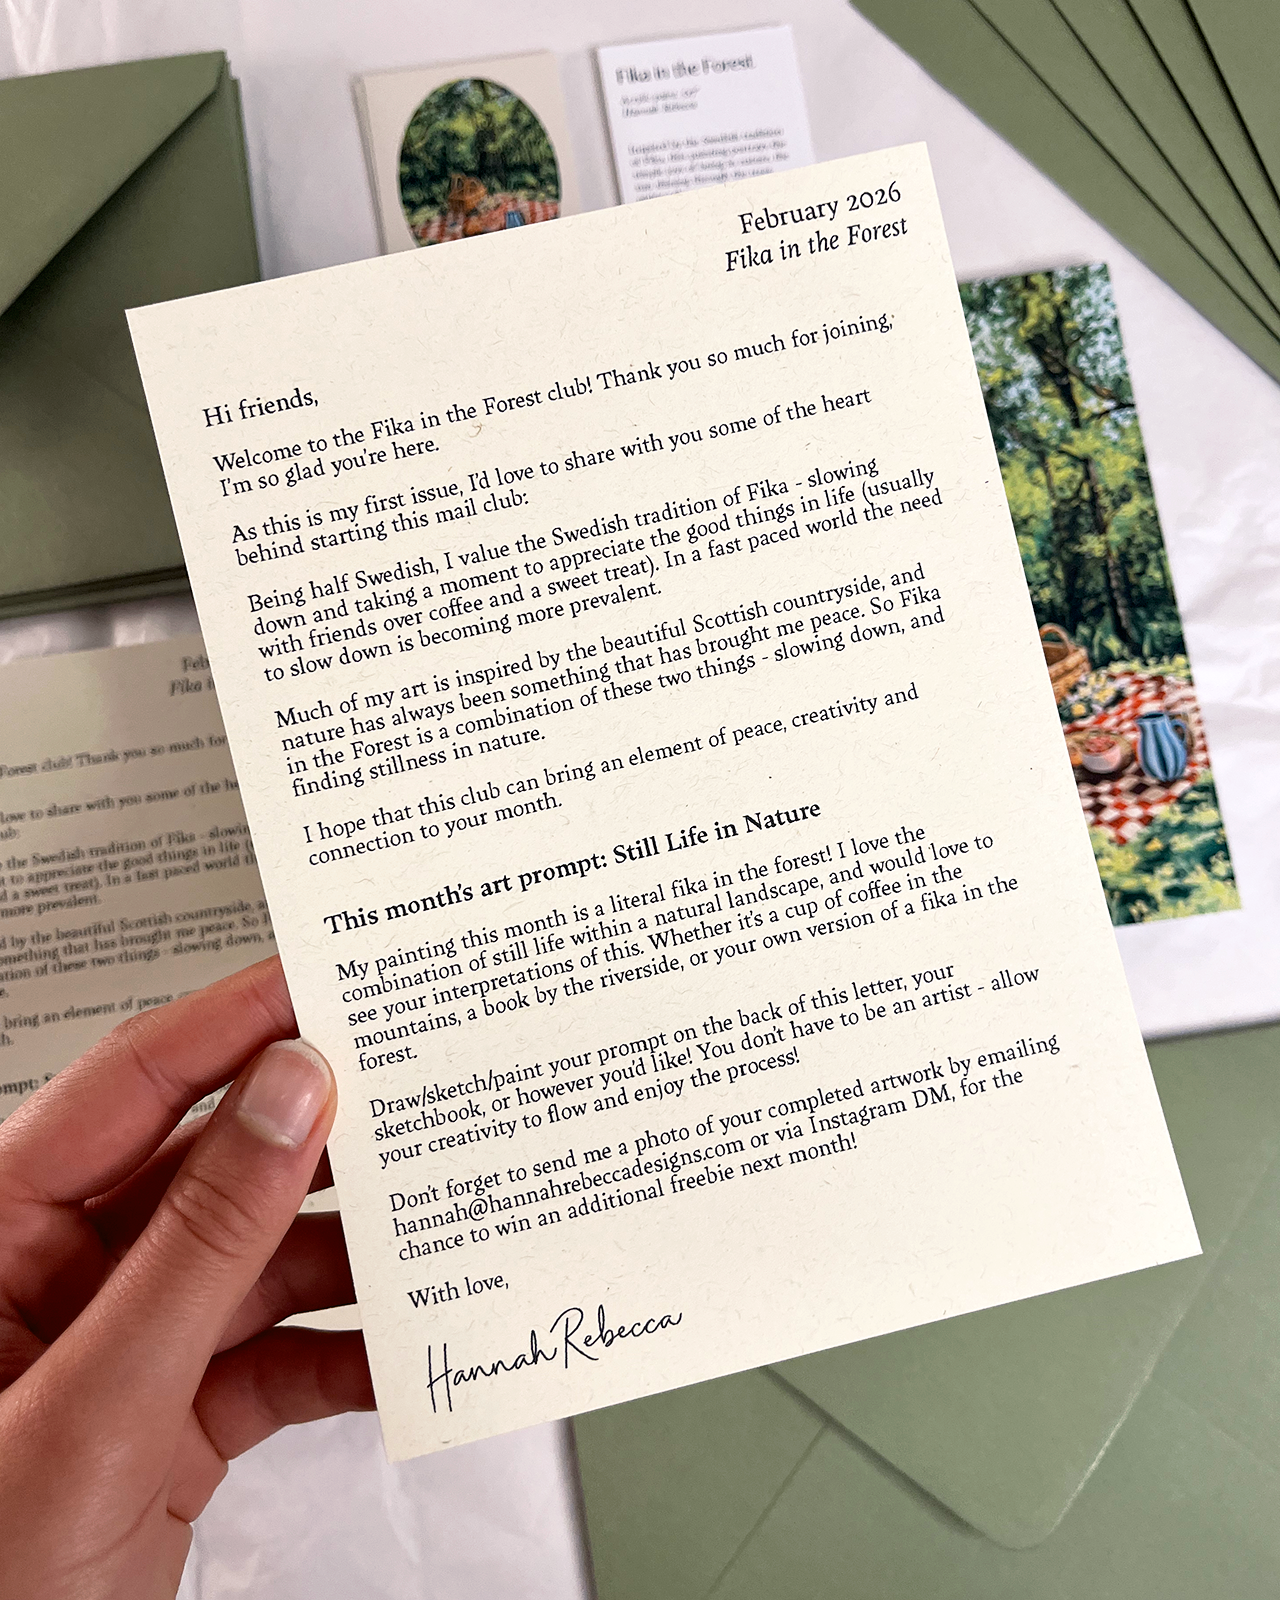 Fika in the Forest
February 2026
Fika in the Forest
Hi friends,
Welcome to the Fika in the Forest club! Thank you so much for joining,
I'm so glad you're here.
As this is my first issue, I'd love to share with you some of the heart
behind starting this mail club:
Being half Swedish, I value the Swedish tradition of Fika - slowing
down and taking a moment to appreciate the good things in life (usually
with friends over coffee and a sweet treat). In a fast paced world the need
to slow down is becoming more prevalent.
Much of my art is inspired by the beautiful Scottish countryside, and
nature has always been something that has brought me peace. So Fika
in the Forest is a combination of these two things - slowing down, and
finding stillness in nature.
I hope that this club can bring an element of peace, creativity and
connection to your month.
This month's art prompt: Still Life in Nature
My painting this month is a literal fika in the forest! I love the
combination of still life within a natural landscape, and would love to
see your interpretations of this. Whether it's a cup of coffee in the
mountains, a book by the riverside, or your own version of a fika in the
forest.
Draw/sketch/paint your prompt on the back of this letter, your
sketchbook, or however you'd like! You don't have to be an artist - allow
your creativity to flow and enjoy the process!
Don't forget to send me a photo of your completed artwork by emailing
hannah@hannahrebeccadesigns.com or via Instagram DM, for the
chance to win an additional freebie next month!
With love,
Hannah Rebecca
Feb
Fika i
Forest club! Thank you so much for
love to share with you some of the he
ub:
the Swedish tradition of Fika - slowin
t to appreciate the good things in life (
d a sweet treat). In a fast paced world th
more prevalent.
d by the beautiful Scottish countryside, a
omething that has brought me peace. So F
ation of these two things - slowing down, a
e.
bring an element of peace
th.
ompt: S
and